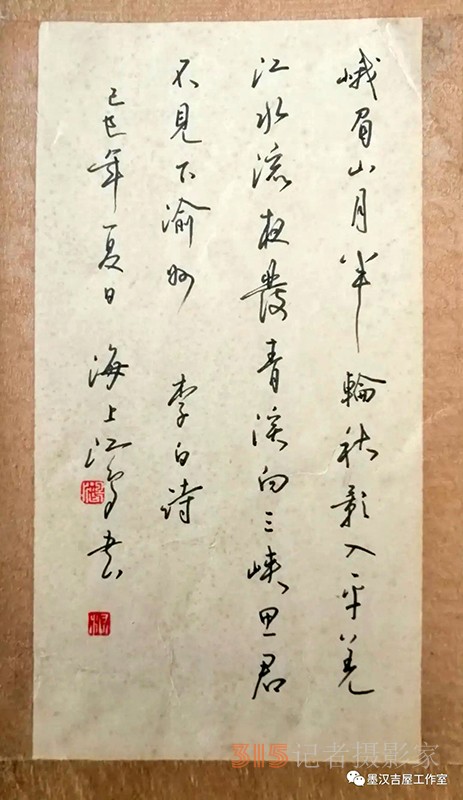 峨眉山月半輪秋影入平羌
江水流夜發青溪向三峽思君
不見下渝州 李白詩
己巳年夏日 海上江書
315记者摄影家
墨汉吉屋工作室